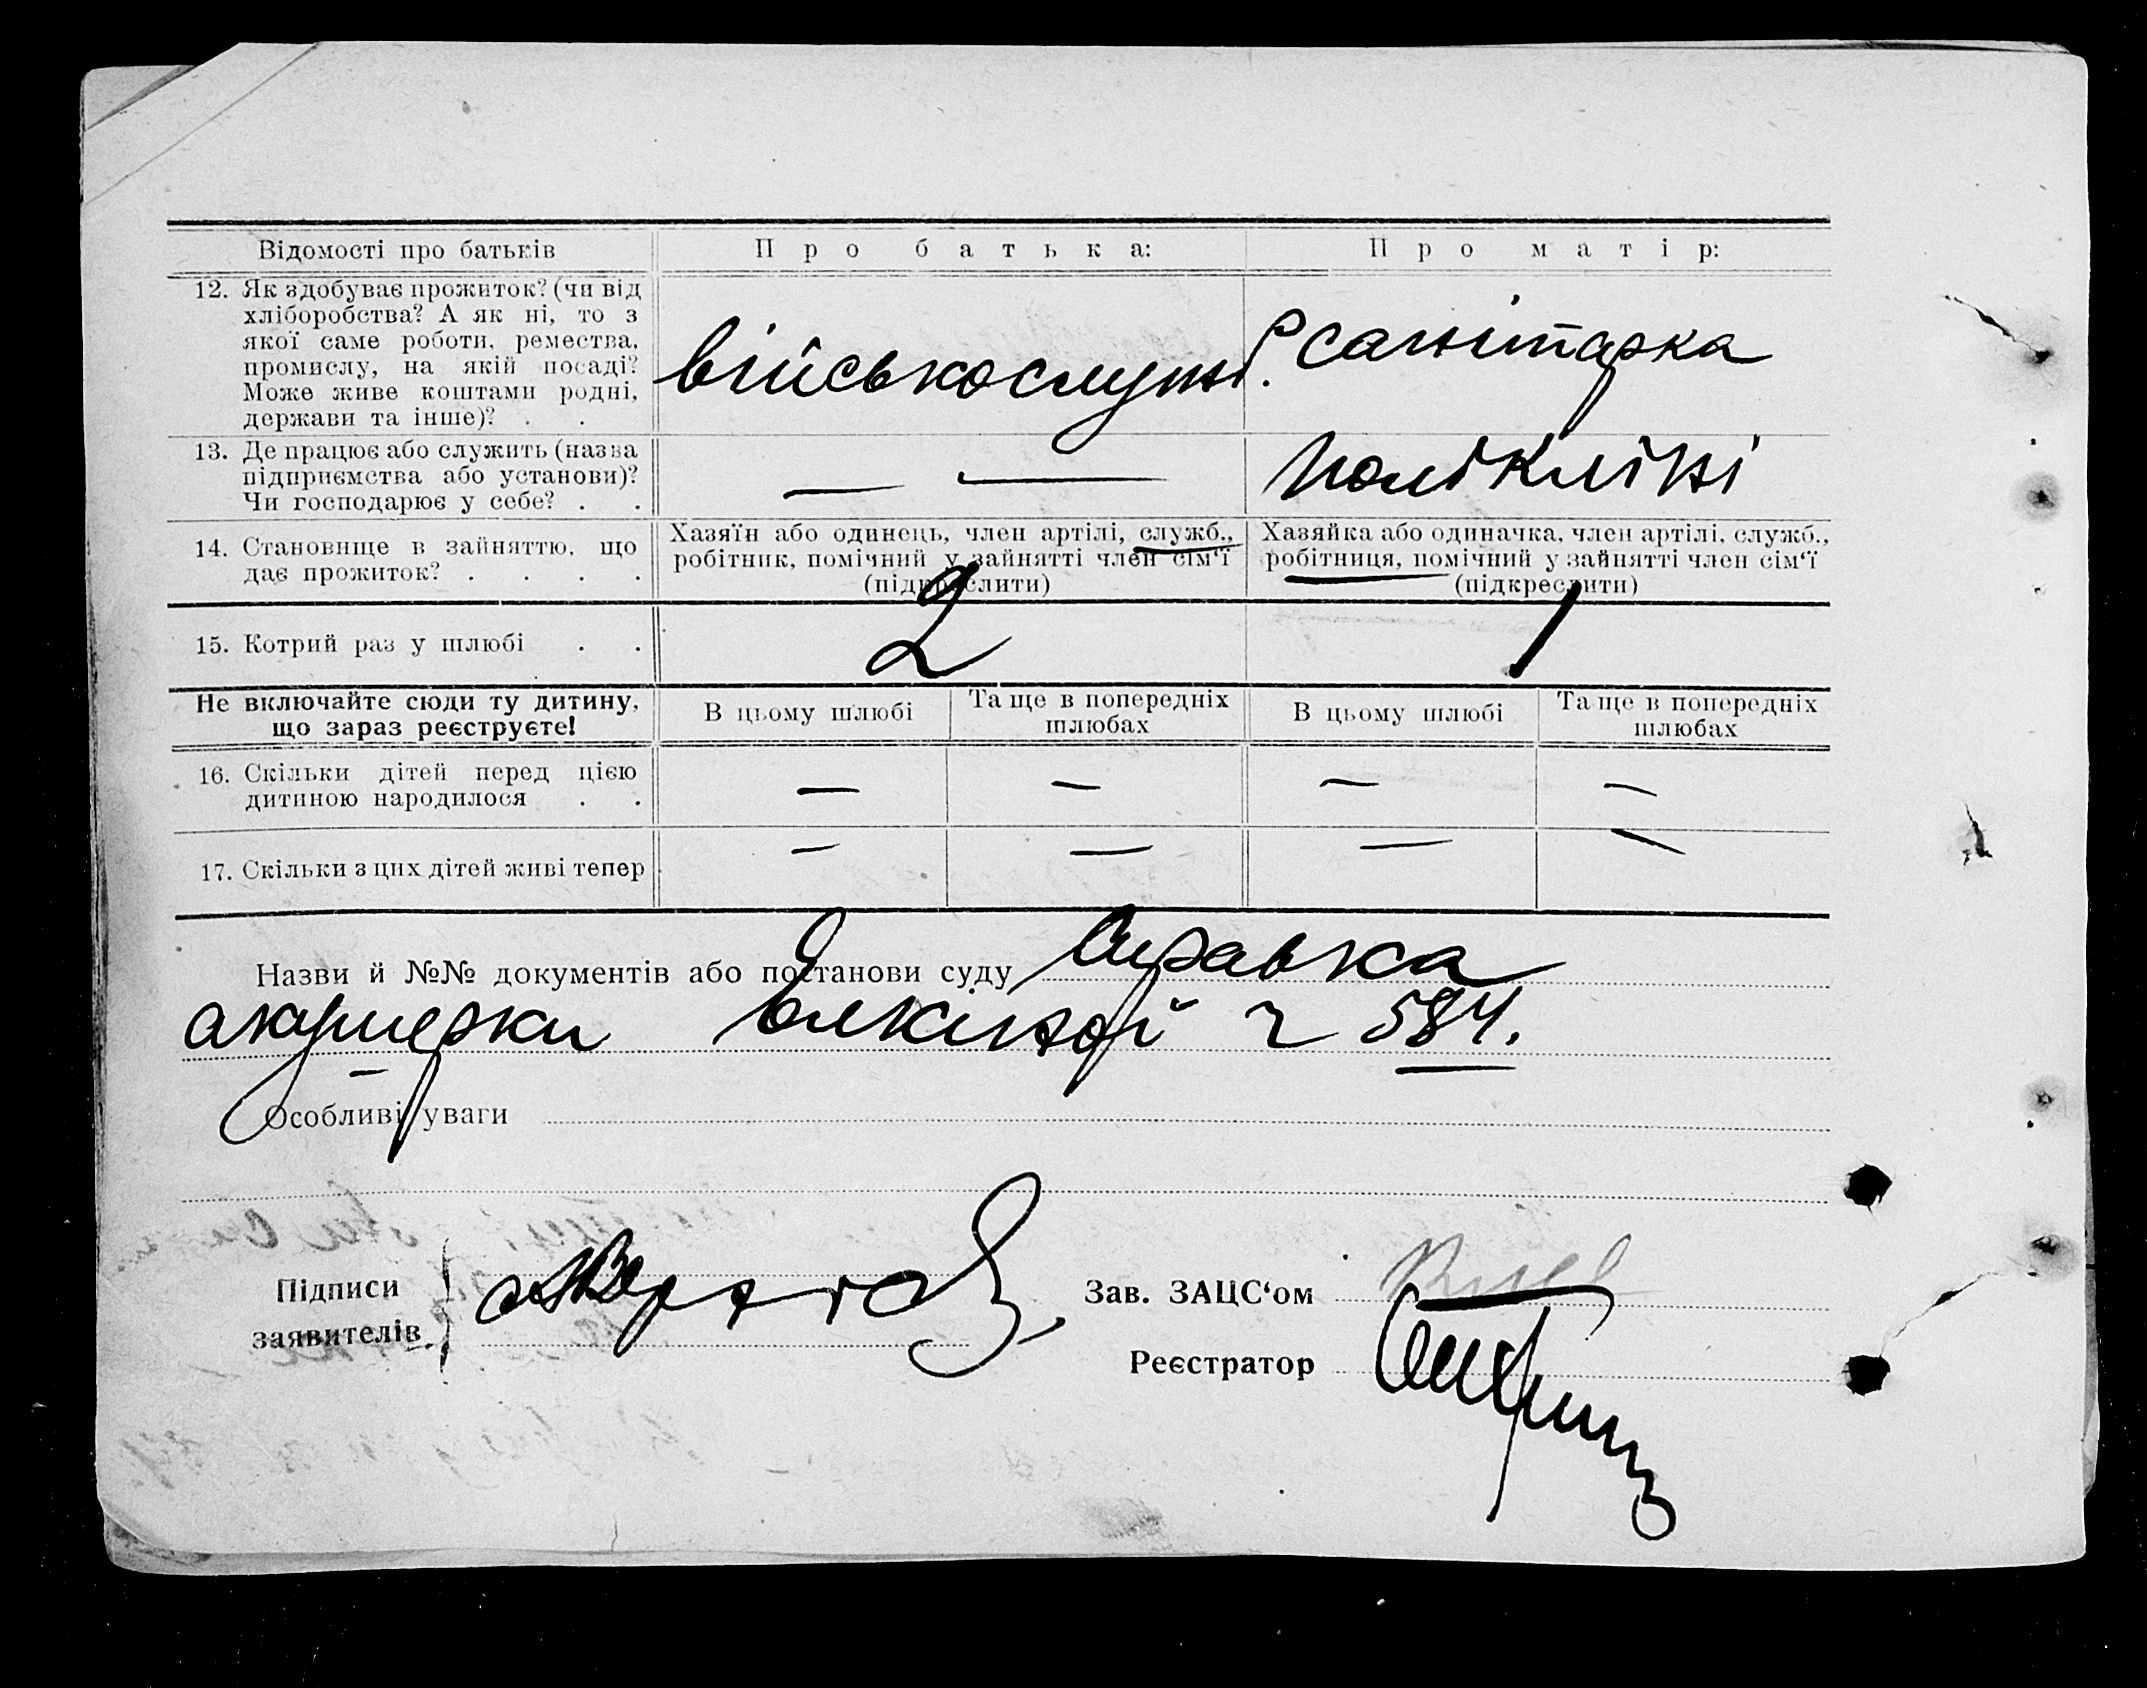 Відомості про батьків
Про батька:
Про матір:
12. Як здобуває прожиток? (чи від
хліборобства? А як ні, то з
якої саме роботи, ремества,
промислу, на якій посаді?
Може живе коштами родні,
держави та інше)? . .
військослужб.
санітарка
13. Де працює або служить (назва
підприємства або установи)?
Чи господарює у себе? . .
— —
поліклініки
14. Становище в зайняттю, що
дає прожиток? . . . .
Хазяїн або одинець, член артілі, служб.,
робітник, помічний у зайнятті член сім‘ї
(підкреслити)
Хазяйка або одиначка, член артілі, служб.,
робітниця, помічний у зайнятті член сім‘ї
(підкреслити)
15. Котрий раз у шлюбі . .
2
1
Не включайте сюди ту дитину,
що зараз реєструєте!
В цьому шлюбі
Та ще в попередніх
шлюбах
В цьому шлюбі
Та ще в попередніх
шлюбах
16. Скільки дітей перед цією
дитиною народилося . .
— — — —
17. Скільки з цих дітей живі тепер
— — — —
Назви й №№ документів або постанови суду Справка
акушерки 584.
Особливі уваги
Підписи
заявителів
Зав. ЗАЦС‘ом
Реєстратор